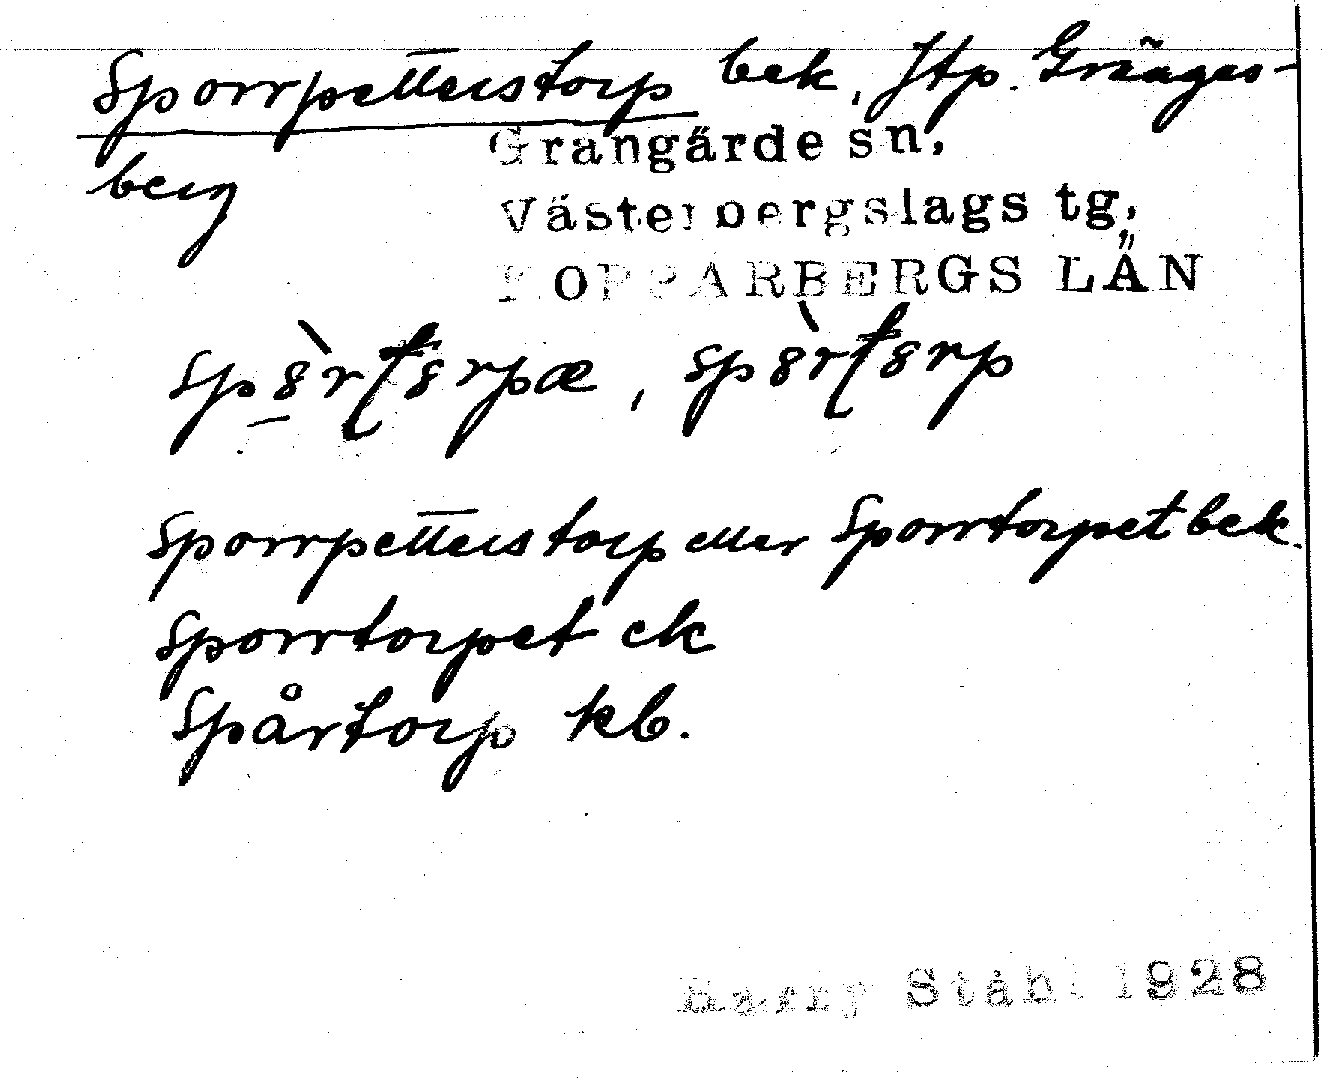 Sporrpetterstorp bek, Jtp. Gränges-
berg
Grangärde sn.
Västerbergslags tg.
KOPPARBERGS LÄN
Sporrpetterstorp eller Sporrtorpet bek.
Sporrtorpet ek
Spårtorp kb.
Harry Ståhl 1928